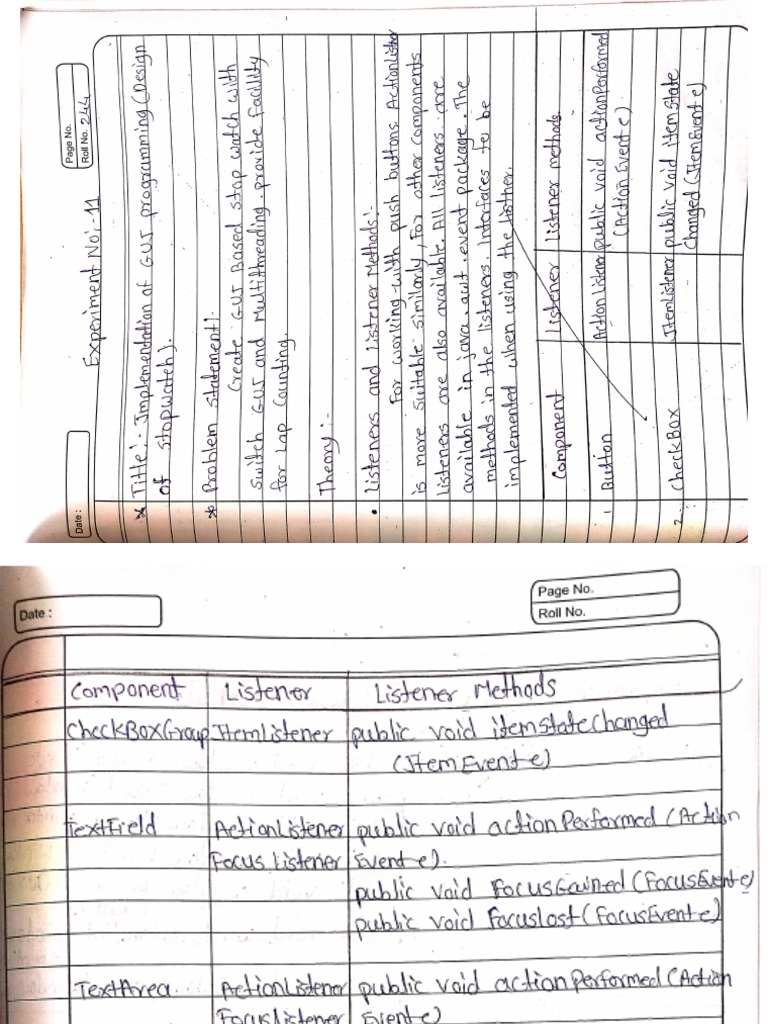 Page No.
Roll No. 244
Date :
Experiment No:-11
* Title:- Implementation of GUI programming (Design
of stopwatch).
* Problem statement:
Create GUI Based stop watch with
switch GUI and Multithreading. provide facility
for Lap Counting.
Theory:-
• Listeners and Listener Methods:-
For working with push buttons ActionListner
is more suitable similarly, For other components
listeners are also available. All listeners are
available in java.awt.event package. The
methods in the listeners. Interfaces to be
implemented when using the listner.
Component Listener Listener methods
1 Button Action Listener public void actionPerformed
(Action Event e)
2. CheckBox ItemListener public void itemstate
changed (ItemEvent e)
Date :
Page No.
Roll No.
Component Listener Listener Methods
CheckBoxGroup ItemListener public void itemstateChanged
(ItemEvent e)
TextField ActionListener public void actionPerformed (Action
Focus Listener Event e).
public void FocusGained (FocusEvent e)
public void Focuslost (FocusEvent e)
TextArea. ActionListener public void actionPerformed (Action
FocusListener Event e)